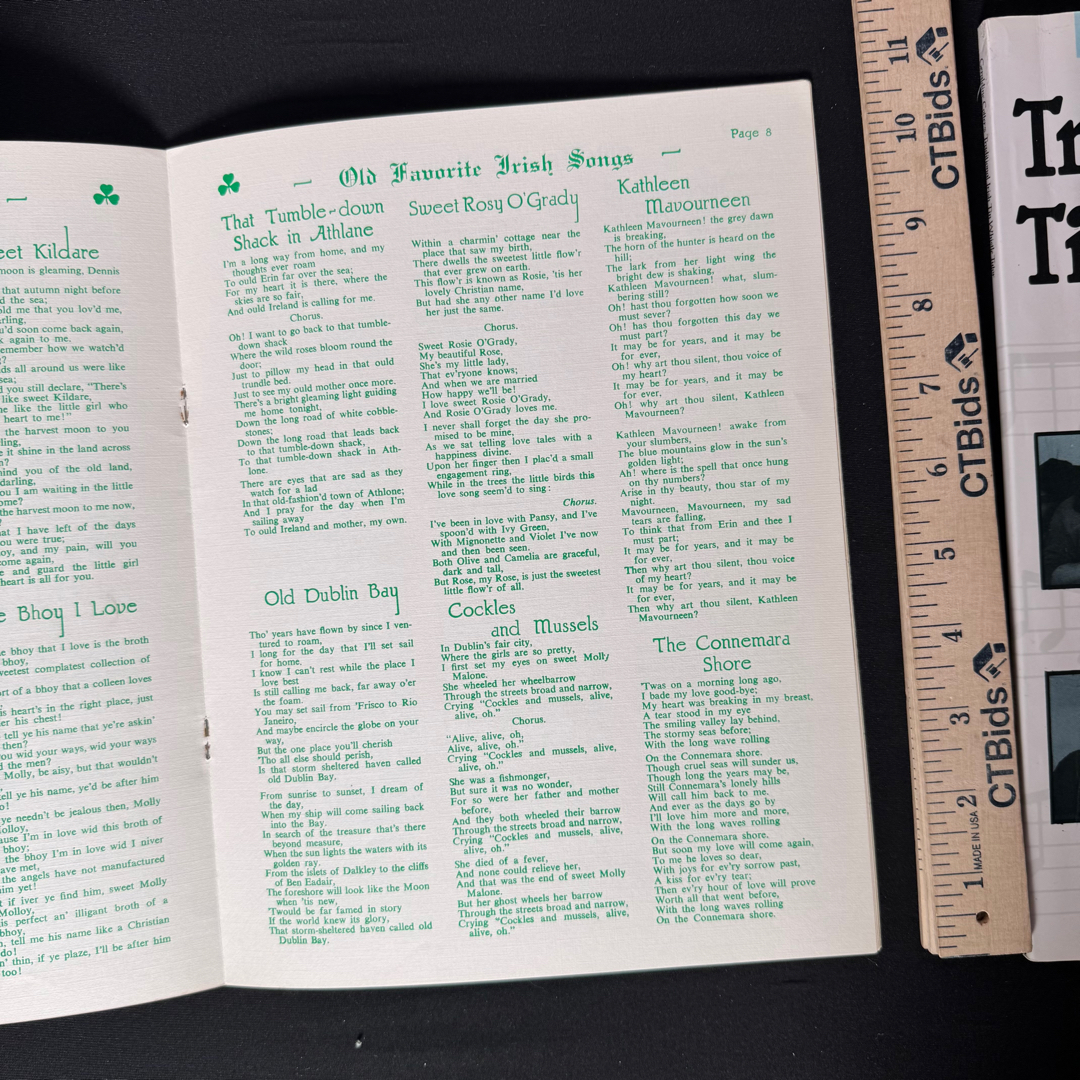 eet Kildare
moon is gleaming, Dennis
that autumn night before
d the sea;
old me that you lov'd me,
rling,
u'd soon come back again,
k again to me.
emember how we watch'd
?
ds all around us were like
sea;
d you still declare, "There's
like sweet Kildare,
ne like the little girl who
heart to me!"
the harvest moon to you
ling,
e it shine in the land across
n?
mind you of the old land,
darling,
ou I am waiting in the little
ome?
the harvest moon to me now,
?
at I have left of the days
ou were true;
oy, and my pain, will you
come again,
e and guard the little girl
heart is all for you.
e Bhoy I Love
e bhoy that I love is the broth
bhoy,
weetest complatest collection of
rt of a bhoy that a colleen loves
is heart's in the right place, just
er his chest!
tell ye his name that ye're askin'
then?
ou wid your ways, wid your ways
d the men?
Molly, be aisy, but that wouldn't
ell ye his name, ye'd be after him
o!
ye needn't be jealous then, Molly
olloy,
ause I'm in love wid this broth of
bhoy;
the bhoy I'm in love wid I niver
ave met,
the angels have not manufactured
im yet!
t if iver ye find him, sweet Molly
Molloy,
is perfect an' illigant broth of a
bhoy,
n, tell me his name like a Christian
do!
n' thin, if ye plaze, I'll be after him
too!
Page 8
Old Favorite Irish Songs
That Tumble-down
Shack in Athlane
I'm a long way from home, and my
thoughts ever roam
To ould Erin far over the sea;
For my heart it is there, where the
skies are so fair,
And ould Ireland is calling for me.
Chorus.
Oh! I want to go back to that tumble-
down shack
Where the wild roses bloom round the
door;
Just to pillow my head in that ould
trundle bed.
Just to see my ould mother once more.
There's a bright gleaming light guiding
me home tonight,
Down the long road of white cobble-
stones;
Down the long road that leads back
to that tumble-down shack,
To that tumble-down shack in Ath-
lone.
There are eyes that are sad as they
watch for a lad
In that old-fashion'd town of Athlone;
And I pray for the day when I'm
sailing away
To ould Ireland and mother, my own.
Old Dublin Bay
Tho' years have flown by since I ven-
tured to roam,
I long for the day that I'll set sail
for home.
I know I can't rest while the place I
love best
Is still calling me back, far away o'er
the foam.
You may set sail from 'Frisco to Rio
Janeiro,
And maybe encircle the globe on your
way,
But the one place you'll cherish
'Tho all else should perish,
Is that storm sheltered haven called
old Dublin Bay.
From sunrise to sunset, I dream of
the day,
When my ship will come sailing back
into the Bay.
In search of the treasure that's there
beyond measure,
When the sun lights the waters with its
golden ray.
From the islets of Dalkley to the cliffs
of Ben Eadair,
The foreshore will look like the Moon
when 'tis new,
'Twould be far famed in story
If the world knew its glory,
That storm-sheltered haven called old
Dublin Bay.
Sweet Rosy O'Grady
Within a charmin' cottage near the
place that saw my birth,
There dwells the sweetest little flow'r
that ever grew on earth.
This flow'r is known as Rosie, 'tis her
lovely Christian name,
But had she any other name I'd love
her just the same.
Chorus.
Sweet Rosie O'Grady,
My beautiful Rose,
She's my little lady,
That ev'ryone knows;
And when we are married
How happy we'll be!
I love sweet Rosie O'Grady,
And Rosie O'Grady loves me.
I never shall forget the day she pro-
mised to be mine,
As we sat telling love tales with a
happiness divine.
Upon her finger then I plac'd a small
engagement ring,
While in the trees the little birds this
love song seem'd to sing:
Chorus.
I've been in love with Pansy, and I've
spoon'd with Ivy Green,
With Mignonette and Violet I've now
and then been seen.
Both Olive and Camelia are graceful,
dark and tall,
But Rose, my Rose, is just the sweetest
little flow'r of all.
Cockles
and Mussels
In Dublin's fair city,
Where the girls are so pretty,
I first set my eyes on sweet Molly
Malone.
She wheeled her wheelbarrow
Through the streets broad and narrow,
Crying "Cockles and mussels, alive,
alive, oh."
Chorus.
"Alive, alive, oh,
Alive, alive, oh."
Crying "Cockles and mussels, alive,
alive, oh."
She was a fishmonger,
But sure it was no wonder,
For so were her father and mother
before,
And they both wheeled their barrow
Through the streets broad and narrow,
Crying "Cockles and mussels, alive,
alive, oh."
She died of a fever,
And none could relieve her,
And that was the end of sweet Molly
Malone.
But her ghost wheels her barrow
Through the streets broad and narrow,
Crying "Cockles and mussels, alive,
alive, oh."
Kathleen
Mavourneen
Kathleen Mavourneen! the grey dawn
is breaking,
The horn of the hunter is heard on the
hill;
The lark from her light wing the
bright dew is shaking,
Kathleen Mavourneen! what, slum-
bering still?
Oh! hast thou forgotten how soon we
must sever?
Oh! has thou forgotten this day we
must part?
It may be for years, and it may be
for ever,
Oh! why art thou silent, thou voice of
my heart?
It may be for years, and it may be
for ever,
Oh! why art thou silent, Kathleen
Mavourneen?
Kathleen Mavourneen! awake from
your slumbers,
The blue mountains glow in the sun's
golden light;
Ah! where is the spell that once hung
on thy numbers?
Arise in thy beauty, thou star of my
night.
Mavourneen, Mavourneen, my sad
tears are falling,
To think that from Erin and thee I
must part;
It may be for years, and it may be
for ever,
Then why art thou silent, thou voice
of my heart?
It may be for years, and it may be
for ever,
Then why art thou silent, Kathleen
Mavourneen?
The Connemara
Shore
'Twas on a morning long ago,
I bade my love good-bye;
My heart was breaking in my breast,
A tear stood in my eye
The smiling valley lay behind,
The stormy seas before;
With the long wave rolling
On the Connemara shore.
Though cruel seas will sunder us,
Though long the years may be,
Still Connemara's lonely hills
Will call him back to me.
And ever as the days go by
I'll love him more and more,
With the long waves rolling
On the Connemara shore.
But soon my love will come again,
To me he loves so dear,
With joys for ev'ry sorrow past,
A kiss for ev'ry tear;
Then ev'ry hour of love will prove
Worth all that went before,
With the long waves rolling
On the Connemara shore.
11
10
9
8
7
6
5
4
3
2
1
CTBids
CTBids
CTBids
MADE IN USA
Ir
Ti